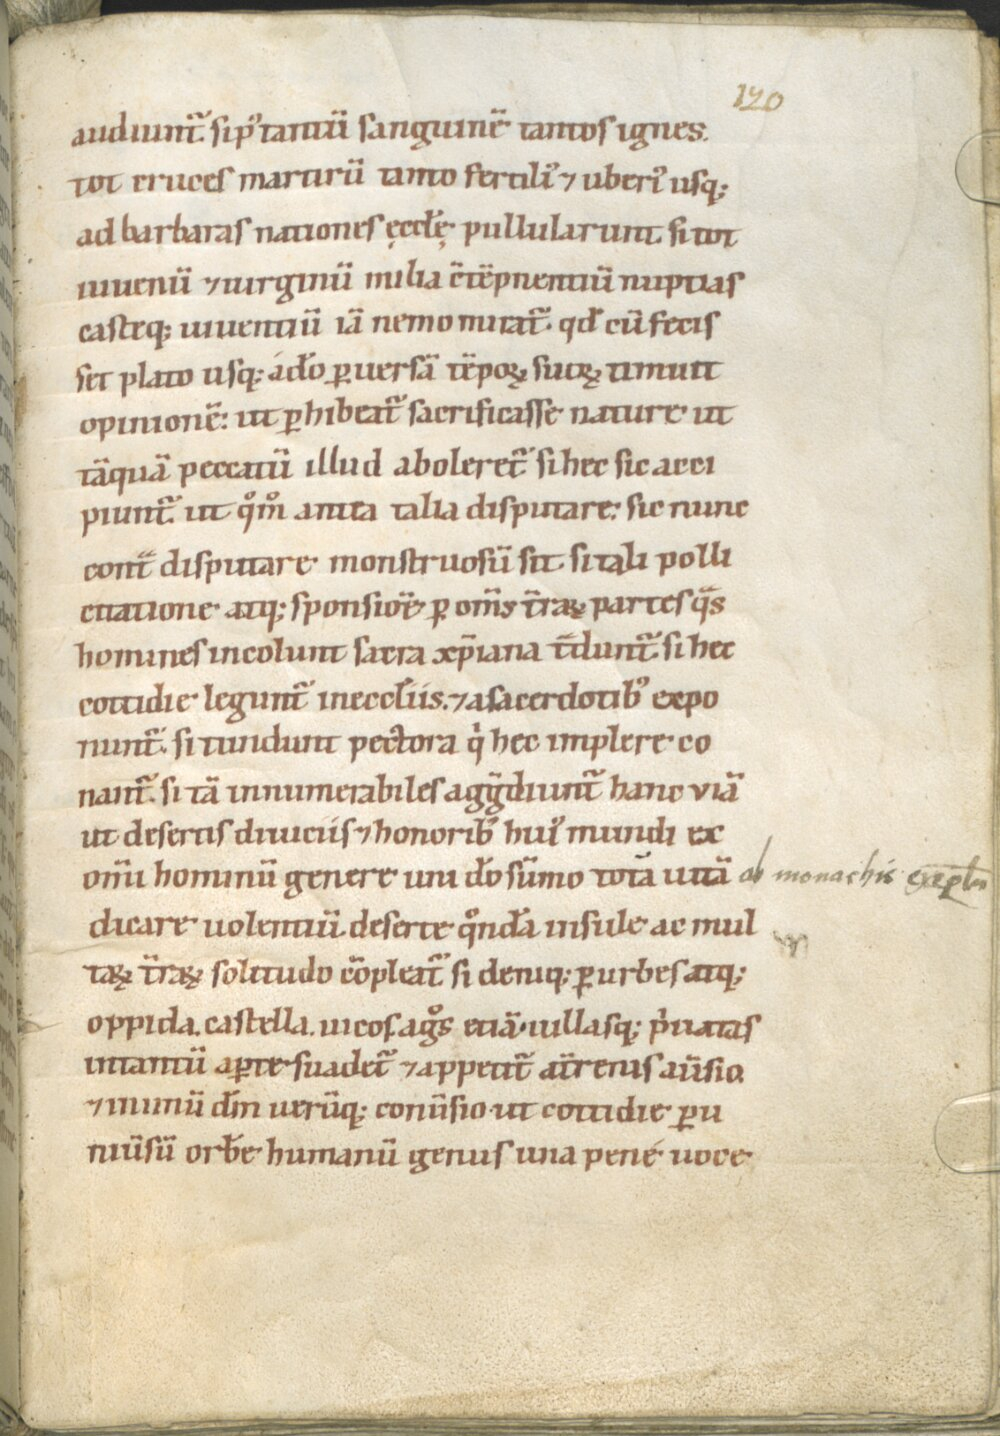 120
audiunt᷑. si p᷒ tantū sanguinē tantos ignes.
tot cruces martirū tanto fertili᷒ ⁊ uberi᷒ usq;
ad barbaras nationes ęccłę pullularunt. si tot
iuuenū ⁊ uirginū milia c̄tēpnentiū nuptias
casteq; uiuentiū iā nemo mirat᷑. qđ cū fecis
set plato usq; ádo ꝑuersā tēpoꝝ suoꝝ timuit
opinionē: ut ꝑhibeat᷑ sacrificasse nature ut
tāquā peccatū illud aboleret᷑ si hec sic acci
piunt᷑. ut qͦm̄ antea talia disputare: sic nunc
cont̄ disputare monstruosū sit. si tali polli
citatione atq; sponsione ꝑ om̄s t̄raꝝ partes q̄s
homines incolunt sacra xp̄iana t̄dunt᷑. si hec
cottidie legunt᷑ in eccłiis. ⁊ a sacerdotib᷒ expo
nunt᷑. si tundunt pectora qͥ hec implere co
nant᷑. si tā innumerabiles aggͣdiunt᷑ hanc viā
ut desertis diuiciis ⁊ honorib᷒ hui᷒ mundi ex
om̄i hominū genere uni do sūmo totā uitā
ab monachis exēpłm
dicare uolentiū. deserte qͦndā insule ac mul
taꝝ t̄raꝝ solitudo cōpleat᷑ si deniq; ꝑ urbes atq;
oppida. castella. uicos. agͦs etiā. uillasq; pͥuatas
intantū aꝑte suadet᷑ ⁊ appetit᷑ at̄renis aūsio.
⁊ inunū dm̄ uerūq; conūsio. ut cottidie ꝑ u
niūsū orbē humanū genus una pené uoce